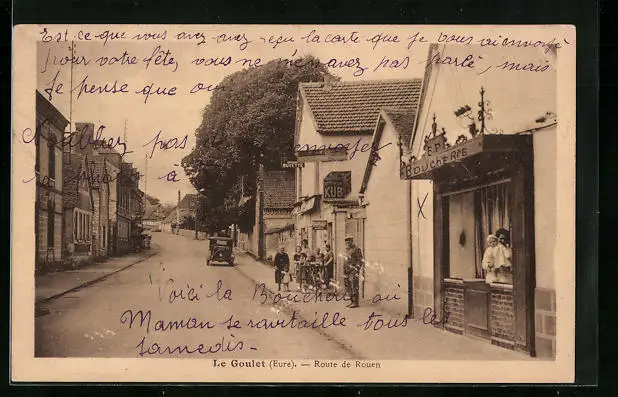 Est-ce que vous avez avez reçu la carte que je vous ai envoyée
pour votre fête, vous ne m'en avez pas parlé, mais
je pense que oui
N'oubliez pas
BUVETTE
KUB
BOUCHERIE
X
Voici la Boucherie où
Maman se ravitaille tous les
samedis-
Le Goulet (Eure). — Route de Rouen